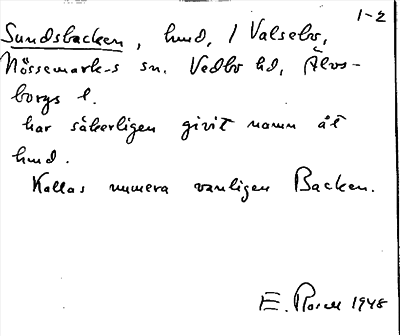 1-2
Sundsbacken, hmd, 1 Valsebo,
Nössemark-s sn. Vedbo hd, Älvs-
borgs l.
har säkerligen givit namn åt
hmd.
Kallas numera vanligen Backen.
E. 1948